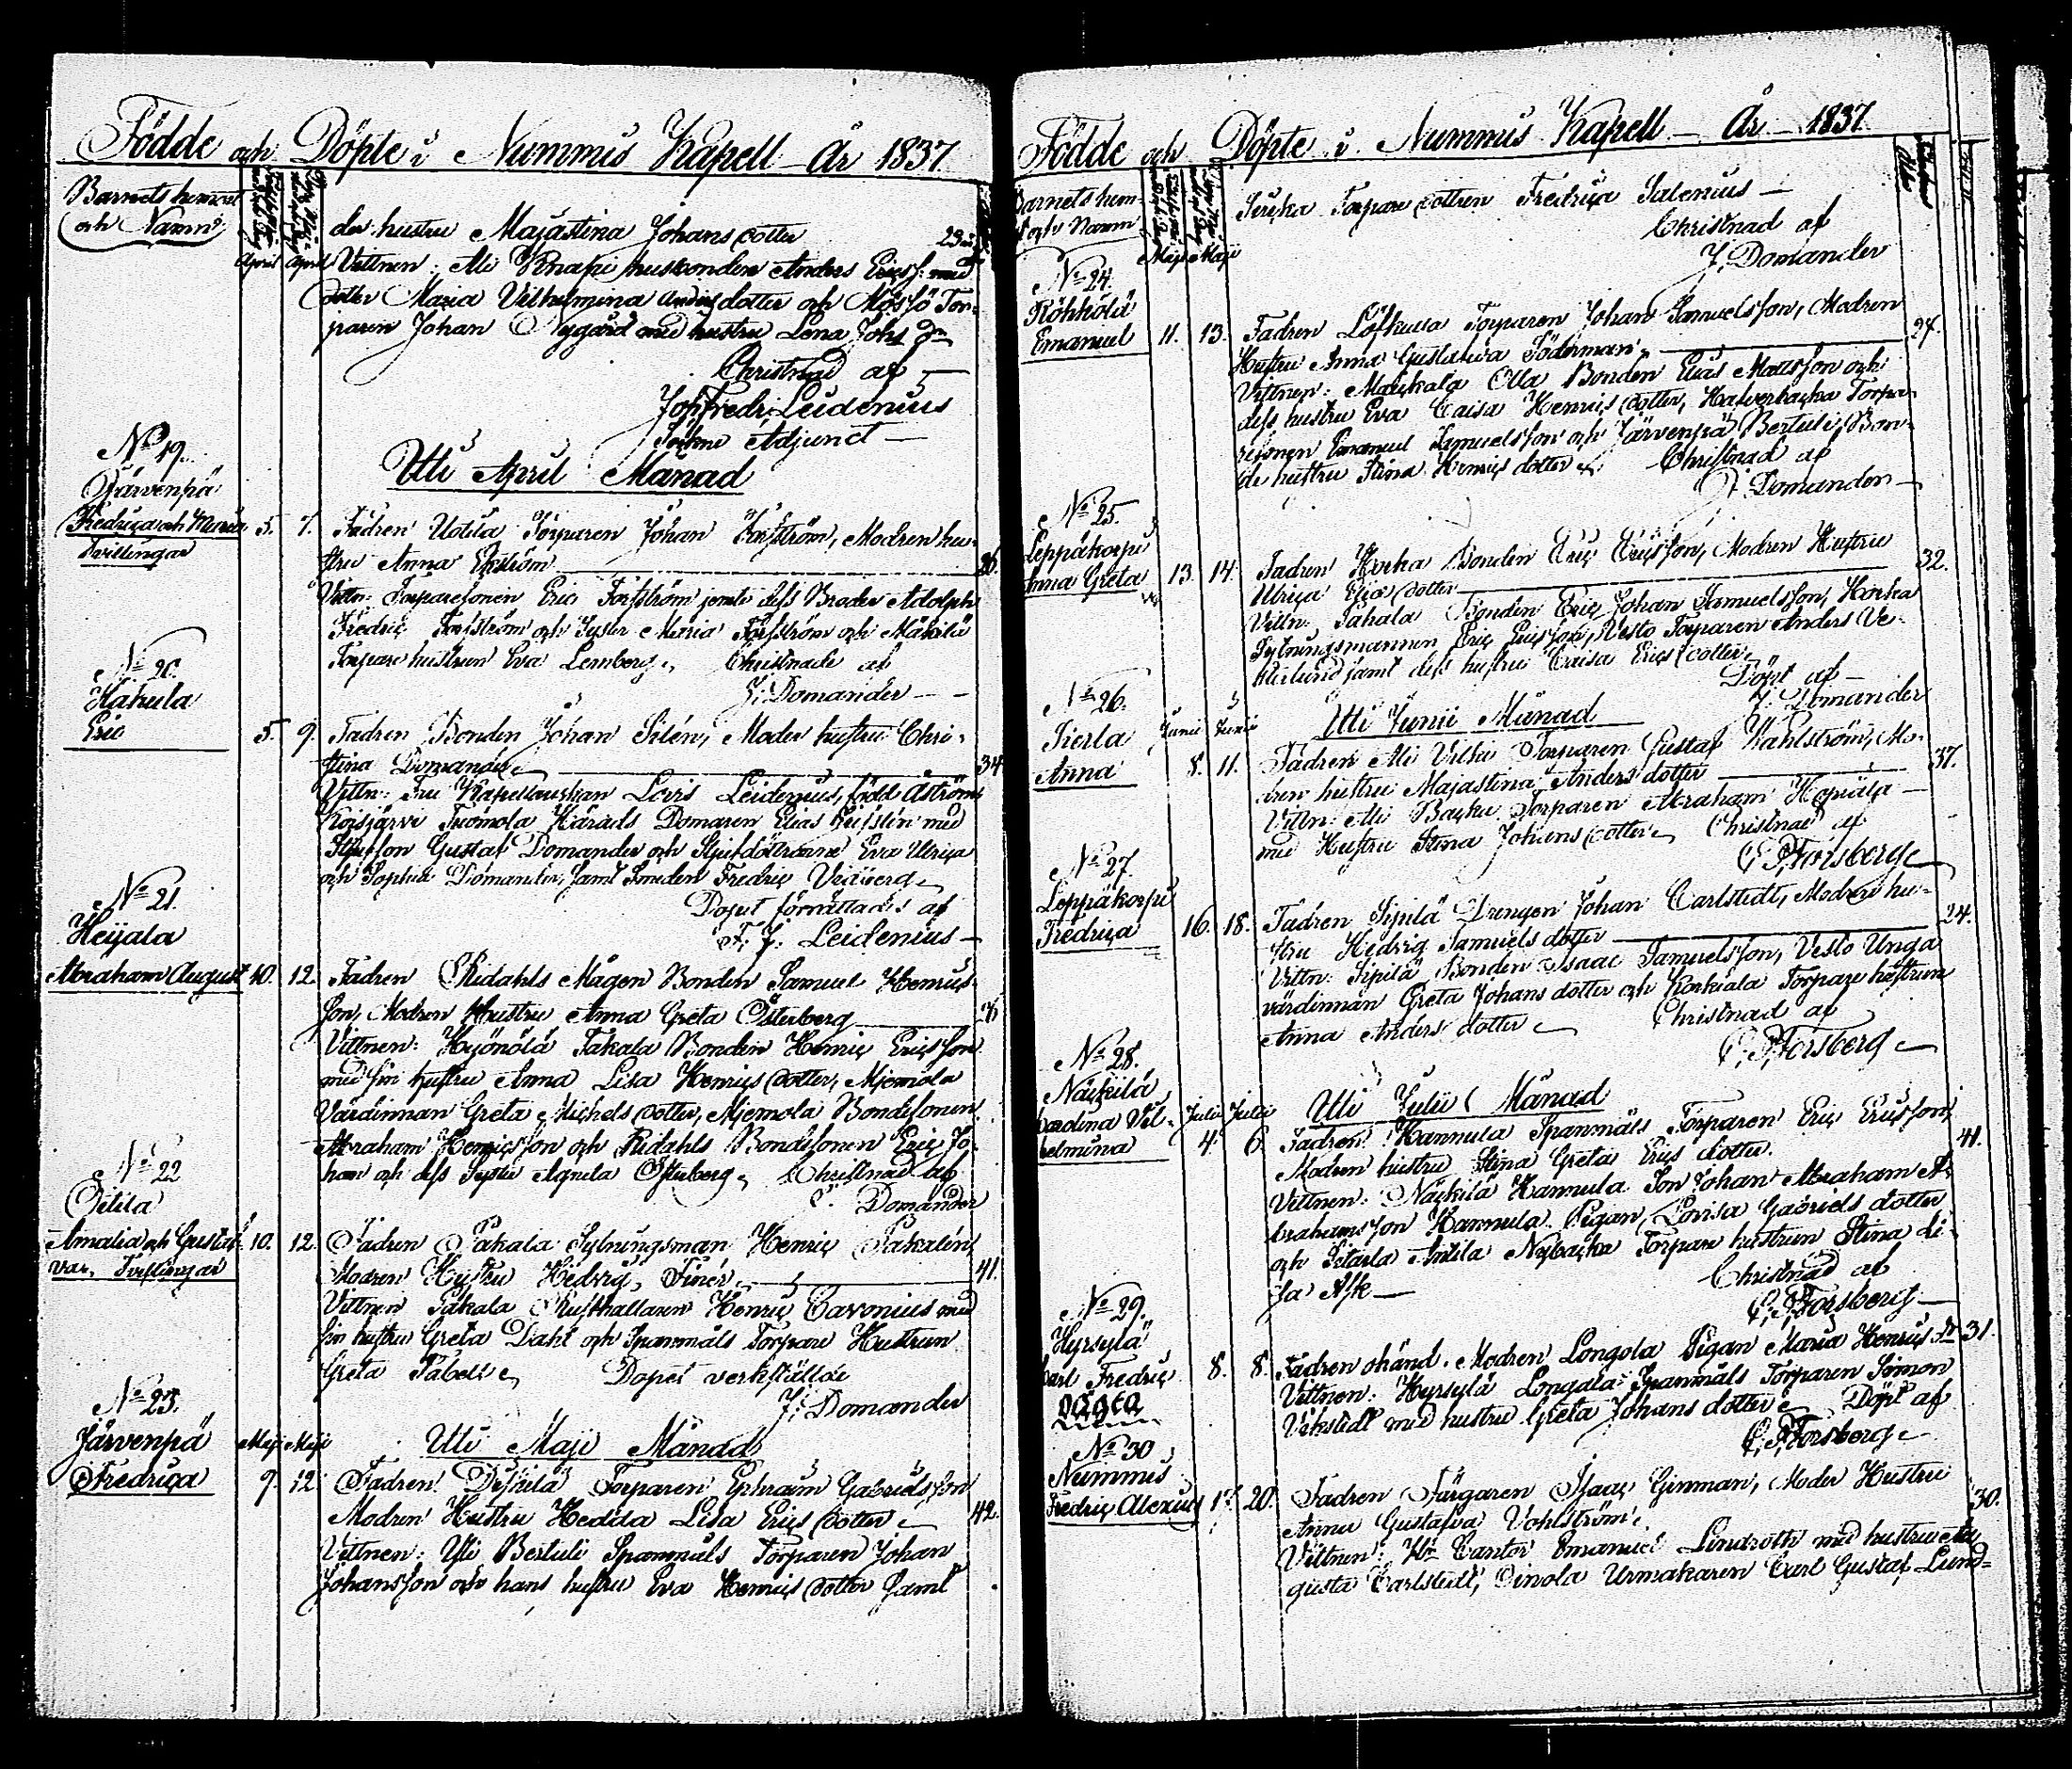 Födde och Döpte i Nummis Kapell År 1837.
Barnets hemvist och Namn
April April
des hustru Majastina Johans dotter 23
Vittnen: Ali Knapi husbonden Anders Ericss: med
dotter Maria Vilhelmina Anders dotter och Torparen
Johan Nygård med hustru Lena Johs dr
Christnad af
Joh Fredr: Leidenius
Adjunct
Uti April Månad
No 19.
Järvenpä
Fredrica och Maria
Tvillingar
5. 7. Fadren Uotila Torparen Johan Forsström, Modren hustru
Anna Ekström 26.
Vittn: Torparesonen Eric Forsström jemte dess Broder Adolph
Fredric Forsström och Syster Maria Forsström och Mäkilä
Torpare hustrun Eva Lernberg. Christnade af
J: Domander
No 20.
Hakula
Eric
5. 9. Fadren Bonden Johan Silén, Moder hustru Christina
Domander 34
Vittn: Fru Kapellanskan Lovis Leidenius, född Åström,
Koisjärvi Tuomola Härads Domaren Elias med
Gustaf Domander och Eva Ulrica
och Sophia Domander, samt Fredric
Dopet förrättades af
J. Leidenius
No 21.
Heijala
Abraham August
10. 12. Fadren Ridahls Mågen Bonden Samuel Henricsson,
Modren Hustru Anna Greta Österberg
Vittnen: Hyönölä Takala Bonden Henric Ericsson
med sin hustru Anna Lisa Henrics dotter, Mjemola
Värdinnan Greta Michels dotter, Mjemola Bondesonen
Abraham Henricsson och Ridahls Bondesonen Eric Johan
och dess Syster Agneta Österberg. Christnad af
Domander
No 22
Oitila
Amalia och Gustava, Tvillingar
10. 12. Fadren Pakala Sytningsman Henric Pakalén,
Modren Hustru Hedvig Finér 41.
Vittnen Pakala Rusthållaren Henric Cavonius med
sin hustru Greta Dahl och Spanmåls Torpare Hustrun
Greta Dopet verkstälde
J: Domander
No 23.
Järvenpä
Fredrica
Maji Maji
Uti Maji Månad
9. 12 Fadren Torparen Ephraim Gabrielsson
Modren Hustru Hedda Lisa Erics dotter 42.
Vittnen: Yli Bertuli Spanmåls Torparen Johan
Johansson och hans hustru Eva Henrics dotter samt
Födde och Döpte i Nummis Kapell År 1837
Barnets hemvist och Namn
Maji Maji
Torpare dottren Fredrica Salenius
Christnad af
J. Domander
No 24.
Röhkölä
Emanuel
11. 13. Fadren Löfkulla Torparen Johan Samuelsson, Modren
Hustru Anna Gustava Söderman 24.
Vittnen: Olla Bonden Elias Mattsson och
dess hustru Eva Caisa Henrics dotter, Torparesonen
Emanuel Samuelsson och Järvenpä Bertuli Bonde
hustru Stina Henrics dotter Christnad af
J. Domander
No 25.
Leppäkorpi
Anna Greta
13. 14. Fadren Bonden Eric Ericsson, Modren Hustru
Ulrica Elias dotter 32.
Vittn: Bonden Eric Johan Samuelsson,
Sytningsmannen Eric Ericsson, Vesto Torparen Anders
samt dess hustru Caisa Erics dotter
Döpt af
J. Domander
No 26.
Sierla
Anna
Junii Junii
Uti Junii Månad
8. 11. Fadren Ali Vilku Torparen Gustaf Kahlström, Modren
hustru Majastina Anders dotter 37.
Vittn: Ali Backu Torparen Abraham
med Hustru Stina Johans dotter Christnad af
C. Forsberg
No 27.
Leppäkorpi
Fredrica
16. 18. Fadren Sipilä Drengen Johan Carlstedt, Modren hustru
Hedvig Samuels dotter 24.
Vittn: Sipilä Bonden Isaac Samuelsson, Vesto Unga
värdinnan Greta Johans dotter och Torpare hustrun
Anna Anders dotter Christnad af
C. Forsberg
No 28.
Näykilä
Carolina Vilhelmina
Julii Julii
Uti Julii Månad
4. 6. Fadren Hannula Spanmåls Torparen Eric Ericsson,
Modren hustru Stina Greta Erics dotter. 41.
Vittnen: Näykilä Hannula Son Johan Abraham Abrahamsson
Hannula Pigan Lovisa Gabriels dotter
och Anttila Nybacka Torpare hustrun Stina Lisa
Ask Christnad af
C. Forsberg
No 29.
Hyrsylä
Carl Fredric
oägta
8. 8. Fadren okänd. Modren Longola Pigan Maria Henrics dr 31.
Vittnen: Hyrsylä Longala Spanmåls Torparen Simon
Vikstedt med hustru Greta Johans dotter Döpt af
C. Forsberg
No 30
Nummis
Fredric Alexius
17. 20. Fadren Färgaren Isaac Ginman, Moder Hustru
Anna Gustafva Vohlström. 30.
Vittnen: Hr Cantor Emanuel Lindroth med hustru Augusta
Carlstedt, Oinola Urmakaren Carl Gustaf Lund-